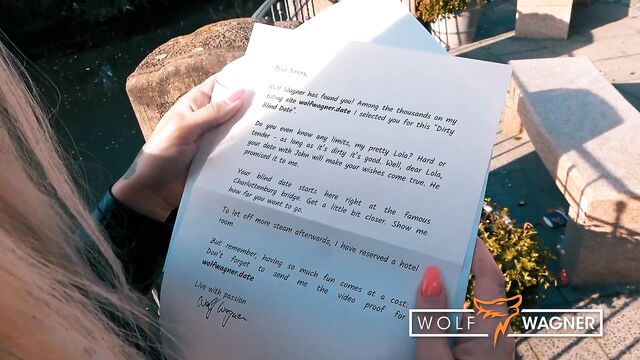 Dear lovers,
Wolf Wagner has found you! Among the thousands on my
dating site wolfwagner.date I selected you for this "Dirty
Blind Date".
Do you even know any limits, my pretty Lola? Hard or
tender - as long as it's dirty it's good. Well, dear Lola,
your date with John will make your wishes come true. He
promised it to me.
Your blind date starts here right at the famous
Charlottenburg bridge. Get a little bit closer. Show me
how far you want to go.
To let off more steam afterwards, I have reserved a hotel
room.
But remember, having so much fun comes at a cost:
Don't forget to send me the video proof for
wolfwagner.date
Live with passion
Wolf Wagner
WOLF WAGNER